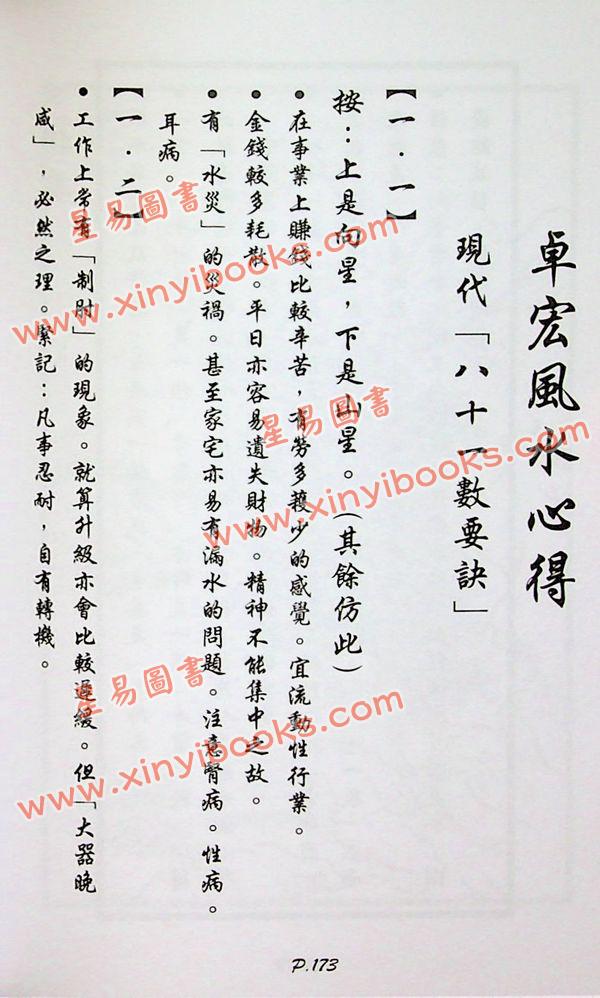 卓宏風水心得
現代「八十一數要訣」
【一．一】
按：上是向星，下是山星。（其餘仿此）
• 在事業上賺錢比較辛苦，有勞多穫少的感覺。宜流動性行業。
• 金錢較多耗散。平日亦容易遺失財物。精神不能集中之故。
• 有「水災」的災禍。甚至家宅亦易有漏水的問題。注意腎病。性病。
耳病。
【一．二】
• 工作上常有「制肘」的現象。就算升級亦會比較遲緩。但「大器晚
成」，必然之理。緊記：凡事忍耐，自有轉機。
星易圖書
www.xinyibooks.com
星易圖書
www.xinyibooks.com
星易圖書
www.xinyibooks.com
P.173